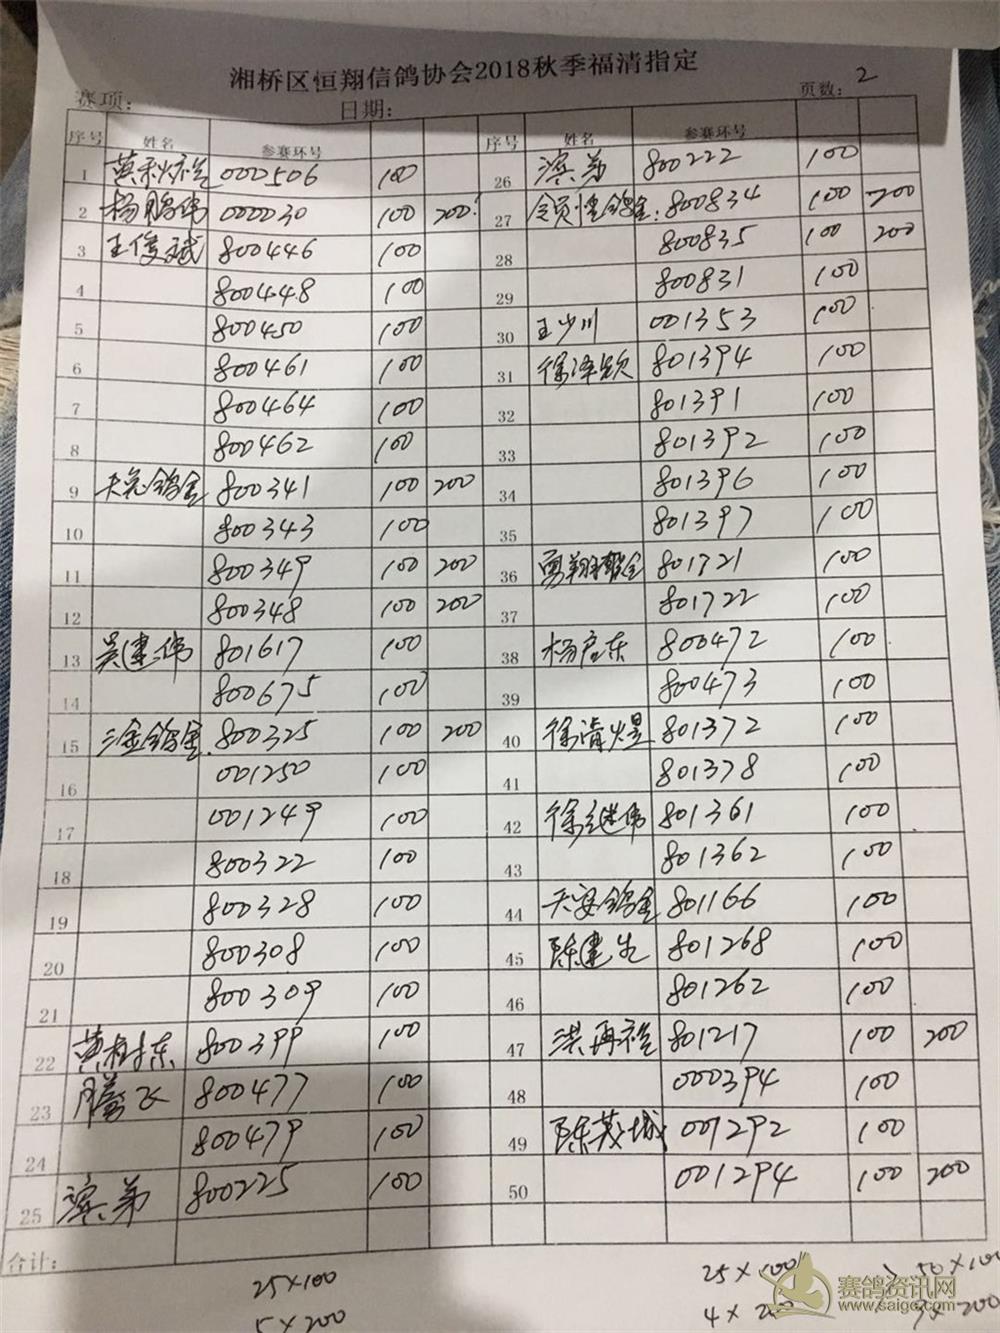 湘桥区恒翔信鸽协会2018秋季福清指定
赛项: 日期: 页数: 2
序号 姓名 参赛环号
1 000506 100
2 杨鹏伟 000030 100 200
3 王俊斌 800446 100
4 800448 100
5 800450 100
6 800461 100
7 800464 100
8 800462 100
9 800341 100 200
10 800343 100
11 800349 100 200
12 800348 100 200
13 吴建伟 801617 100
14 800675 100
15 三金鸽舍 800325 100 200
16 001250 100
17 001249 100
18 800322 100
19 800328 100
20 800308 100
21 800309 100
22 黄树东 800399 100
23 腾飞 800477 100
24 800479 100
25 滨弟 800225 100
合计:
25×100
5×200
序号 姓名 参赛环号
26 滨弟 800222 100
27 800834 100 200
28 800835 100 200
29 800831 100
30 王少川 001353 100
31 徐泽锐 801394 100
32 801391 100
33 801392 100
34 801396 100
35 801397 100
36 801721 100
37 801722 100
38 杨启东 800472 100
39 800473 100
40 徐清煜 801372 100
41 801378 100
42 徐继伟 801361 100
43 801362 100
44 天安鸽舍 801166 100
45 陈建生 801268 100
46 801262 100
47 801217 100 200
48 000394 100
49 陈茂城 001292 100
50 001294 100 200
25×100
4×200
50×100
×200
赛鸽资讯网
www.saige.com